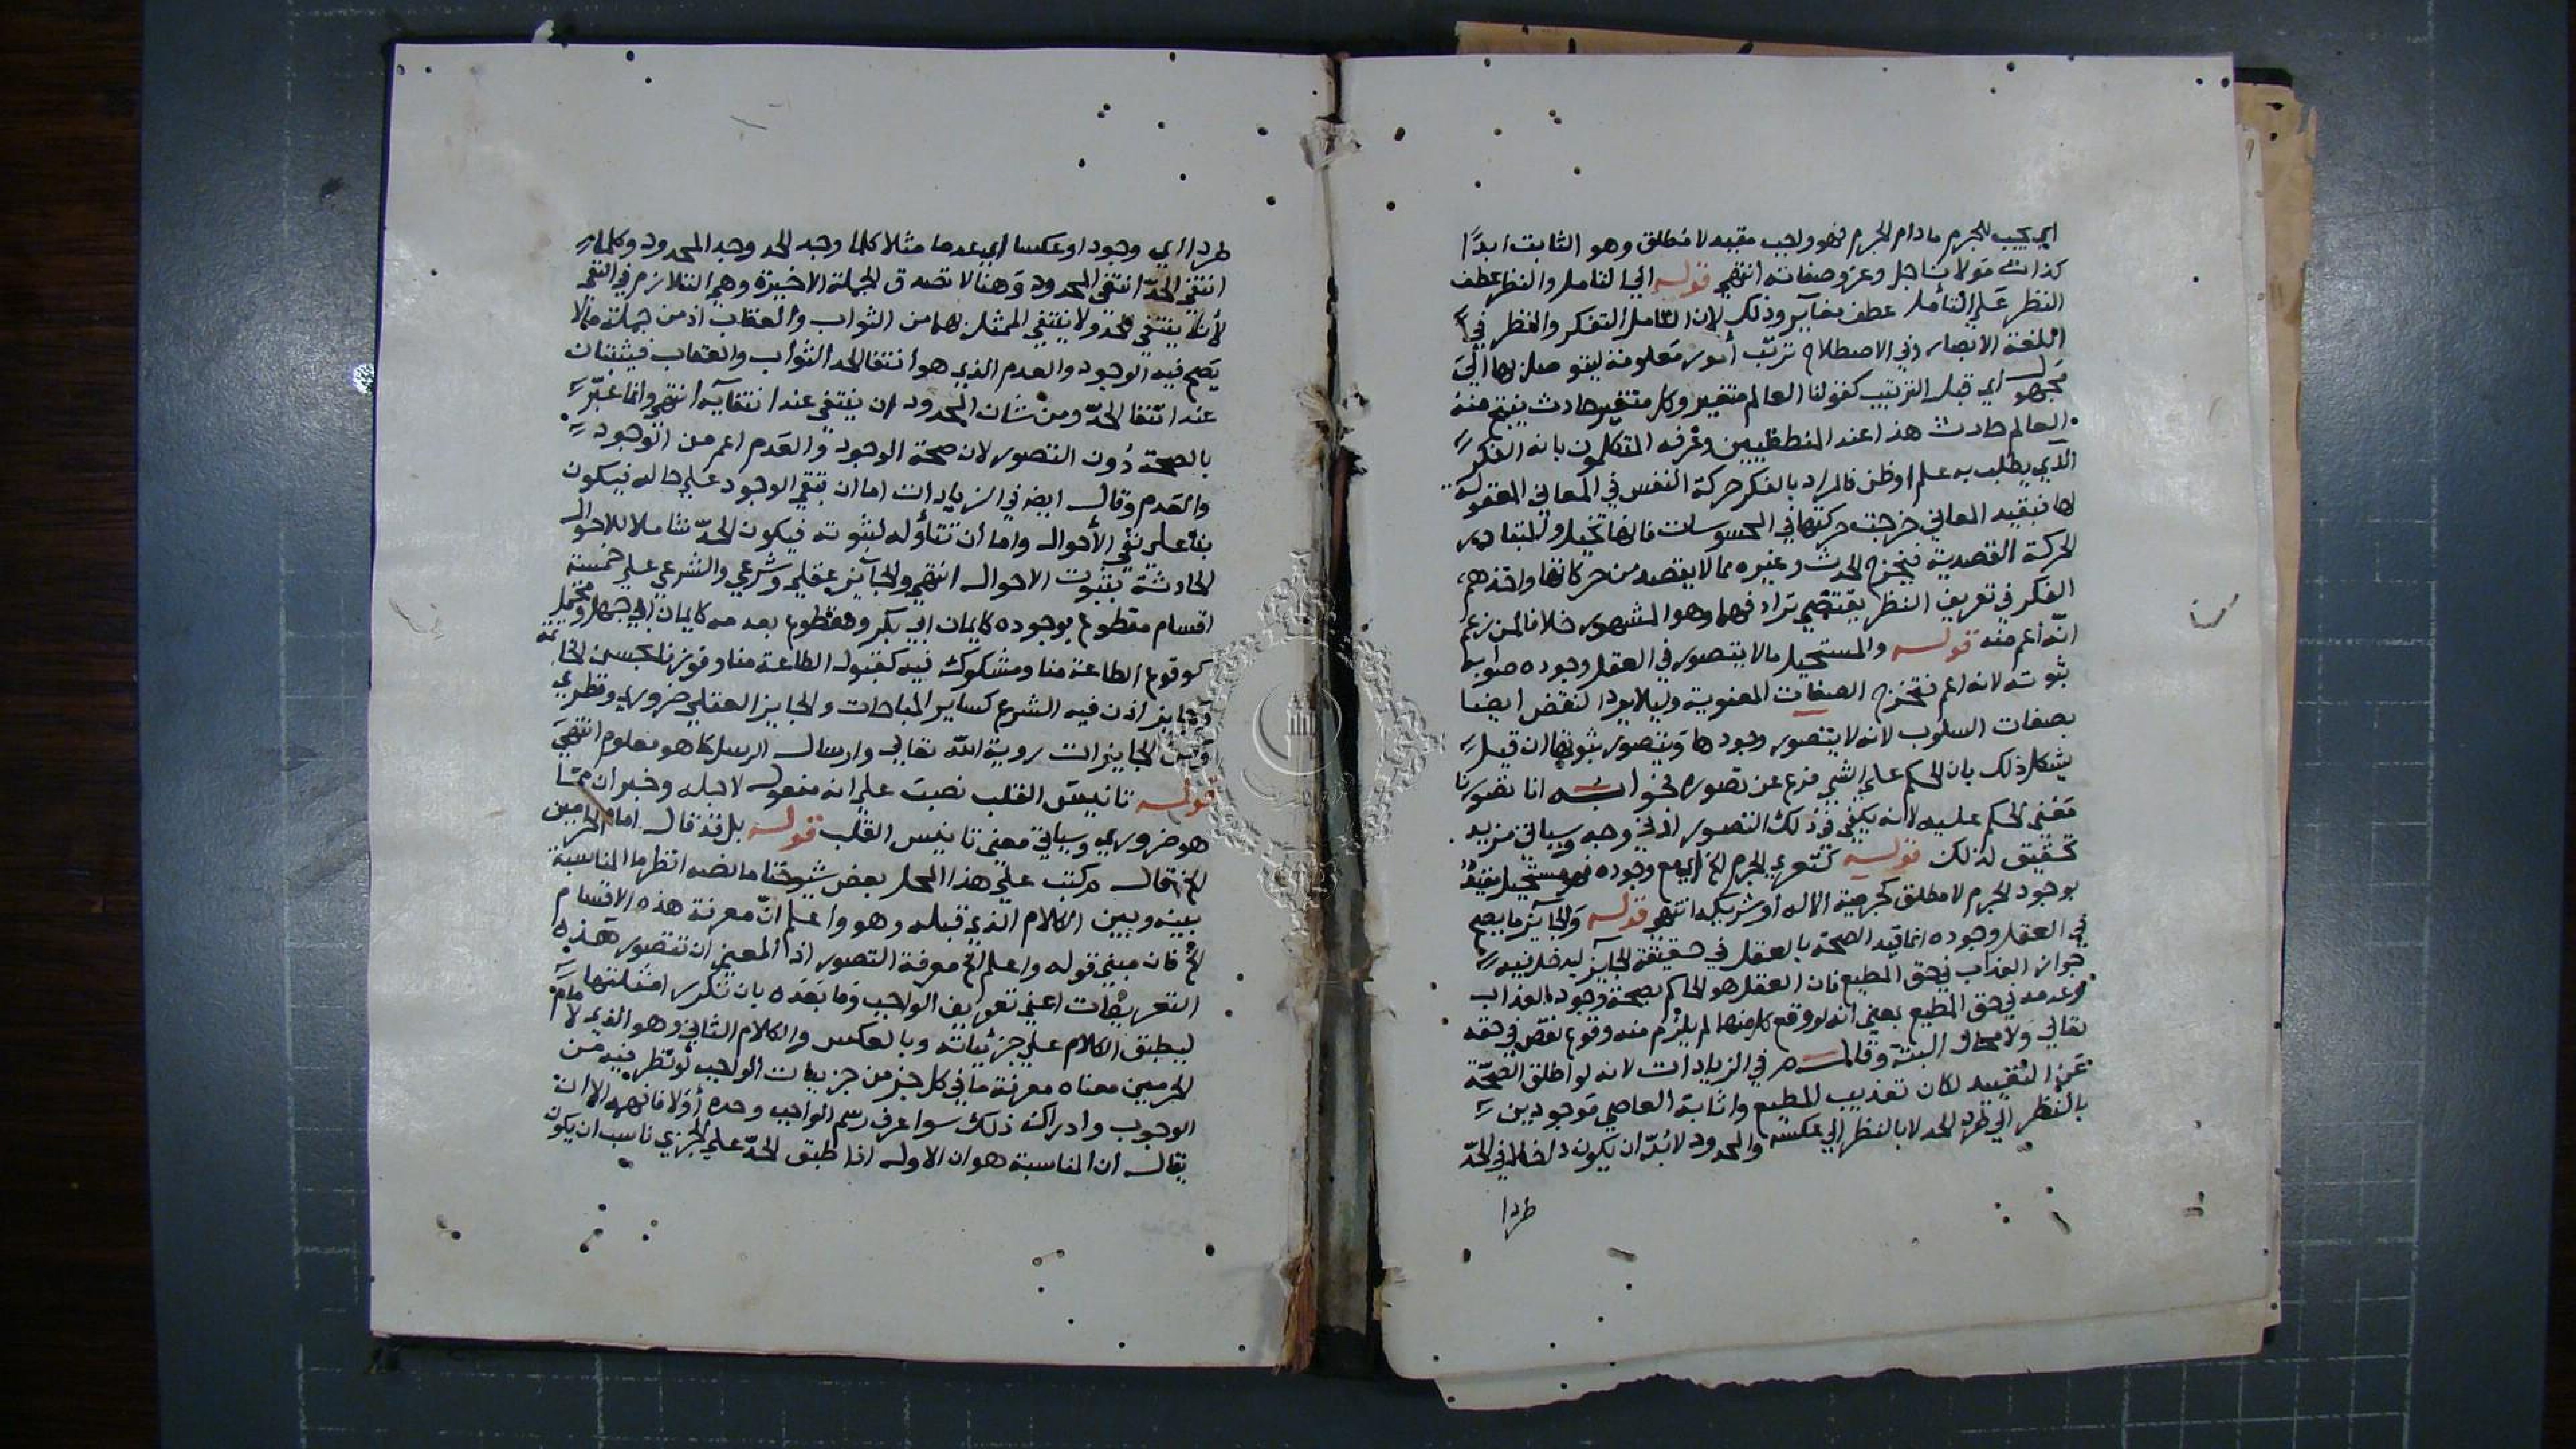 اي يجب للجرم مادام الجرم فهو واجب مقيد لا مطلق وهو الثابت ابدًا
كذات مولانا جل وعز وصفاته انتهي قوله الي التامل والنظر عطف
النظر علي التأمل عطف مغاير وذلك لان التامل التفكر والنظر في
اللغة الابصار وفي الاصطلاح ترتب أمور معلومة ليتوصل بها الي
مجهول اي قبل الترتيب كقولنا العالم متغير وكل متغير حادث ينتج منه
العالم حادث هذا عند المنطقيين وعرفه المتكلمون بانه الفكر
الذي يطلب به علم او ظن فالمراد بالفكر حركة النفس في المعاني المعقولة
لها فبقيد المعاني خرجت حركتها في المحسوسات فانها تخيل والمتبادر
الحركة القصدية فيخرج الحدث وغيره مما لا يقصد من حركاتها واخذهم
الفكر في تعريف النظر يقتضي ترادفهما وهو المشهور خلافا لمن زعم
انه أعم منه قوله والمستحيل مالا يتصور في العقل وجوده صوابه
ثبوته لانه اعم فتخرج الصفات المعنوية وليلا يرد النقض ايضا
بصفات السلوب لانه لا يتصور وجودها ويتصور ثبوتها ان قيل
يشكل ذلك بان الحكم علي الشي فرع عن تصوره فجوابه انا تصورنا
معني الحكم عليه لانه يكفي في ذلك التصور ادني وجه وسياتي مزيد
تحقيق لذلك قوله كتعري الجرم الخ اي مع وجوده فهو مستحيل مقيد
بوجود الجرم لا مطلق كجرمية الاله او شريكه انتهي قوله والجايز ما يصح
في العقل وجوده انما قيد الصحة بالعقل في حقيقة الجايز ليدخل فيه
جواز العذاب في حق المطيع فان العقل هو الحاكم بصحة وجود العذاب
وعدمه في حق المطيع بمعني انه لو وقع كل منهما لم يلزم منه وقوع نقص في حقه
تعالي ولا محال البتة وقال في الزيادات لانه لو اطلق الصحة
عن التقييد لكان تعذيب المطيع واثابة العاصي موجودين
بالنظر الي طرد الحد لا بالنظر الي عكسه والمحدود لا بد ان يكون داخلا في الحد
طردا
طردا اي وجودا وعكسا اي عدما مثلا كلما وجد الحد وجد المحدود وكلما
انتفي الحد انتفي المحدود وهنا لا تصدق الجملة الاخيرة وهي التلازم في النفي
لأنه ينتفي الحد ولا ينتفي الممثل بهما من الثواب والعقاب اذ من جملة مالا
يصح فيه الوجود والعدم الذي هو انتفا الحد الثواب والعقاب فيثبتان
عند انتفا الحد ومن شان المحدود ان ينتفي عند انتفايه انتهي وانما عبر
بالصحة دون التصور لان صحة الوجود والعدم اعم من الوجود
والعدم وقال ايضا في الزيادات اما ان تبقي الوجود علي حاله فيكون
بنا علي نفي الأحوال واما ان تتأوله لثبوته فيكون الحد شاملا للاحوال
الحادثة بثبوت الاحوال انتهي والجايز عقلي وشرعي والشرعي علي خمسة
اقسام مقطوع بوجوده كايمان ابي بكر ومقطوع بعدمه كايمان ابي جهل ومحتمل
كوقوع الطاعة منا ومشكوك فيه كقبول الطاعة منا وفوزنا بحسن الخاتمة
وجايز اذن فيه الشرع كساير المباحات والجايز العقلي ضروري ونظري
ومن الجايزات روية الله تعالي وارسال الرسل كما هو معلوم انتهي
قوله تانيس القلب نصب علي انه مفعول لاجله وخبر ان مما
هو ضروري وسياتي معني تانيس القلب قوله بل قد قال امام الحرمين
الخ قال وكتب علي هذا المحل بعض شيوخنا ما نصه انظر ما المناسبة
بينه وبين الكلام الذي قبله وهو واعلم ان معرفة هذه الاقسام
الخ فان مبني قوله واعلم الخ معرفة التصور اذ المعني ان تتصور هذه
التعريفات اعني تعريف الواجب وما بعده بان تكرر امثلتها مام
ليطبق الكلام علي جزئياته وبالعكس والكلام الثاني وهو الذي لامام
الحرمين معناه معرفة ما في كل جز من جزييات الواجب لو نظر فيه من
الوجوب وادراك ذلك سوا عرف رسم الواجب وحده أولا فانهما الا ان
يقال ان المناسبة هو ان الاول اذا طبق الحد علي الجزي ناسب ان يكون